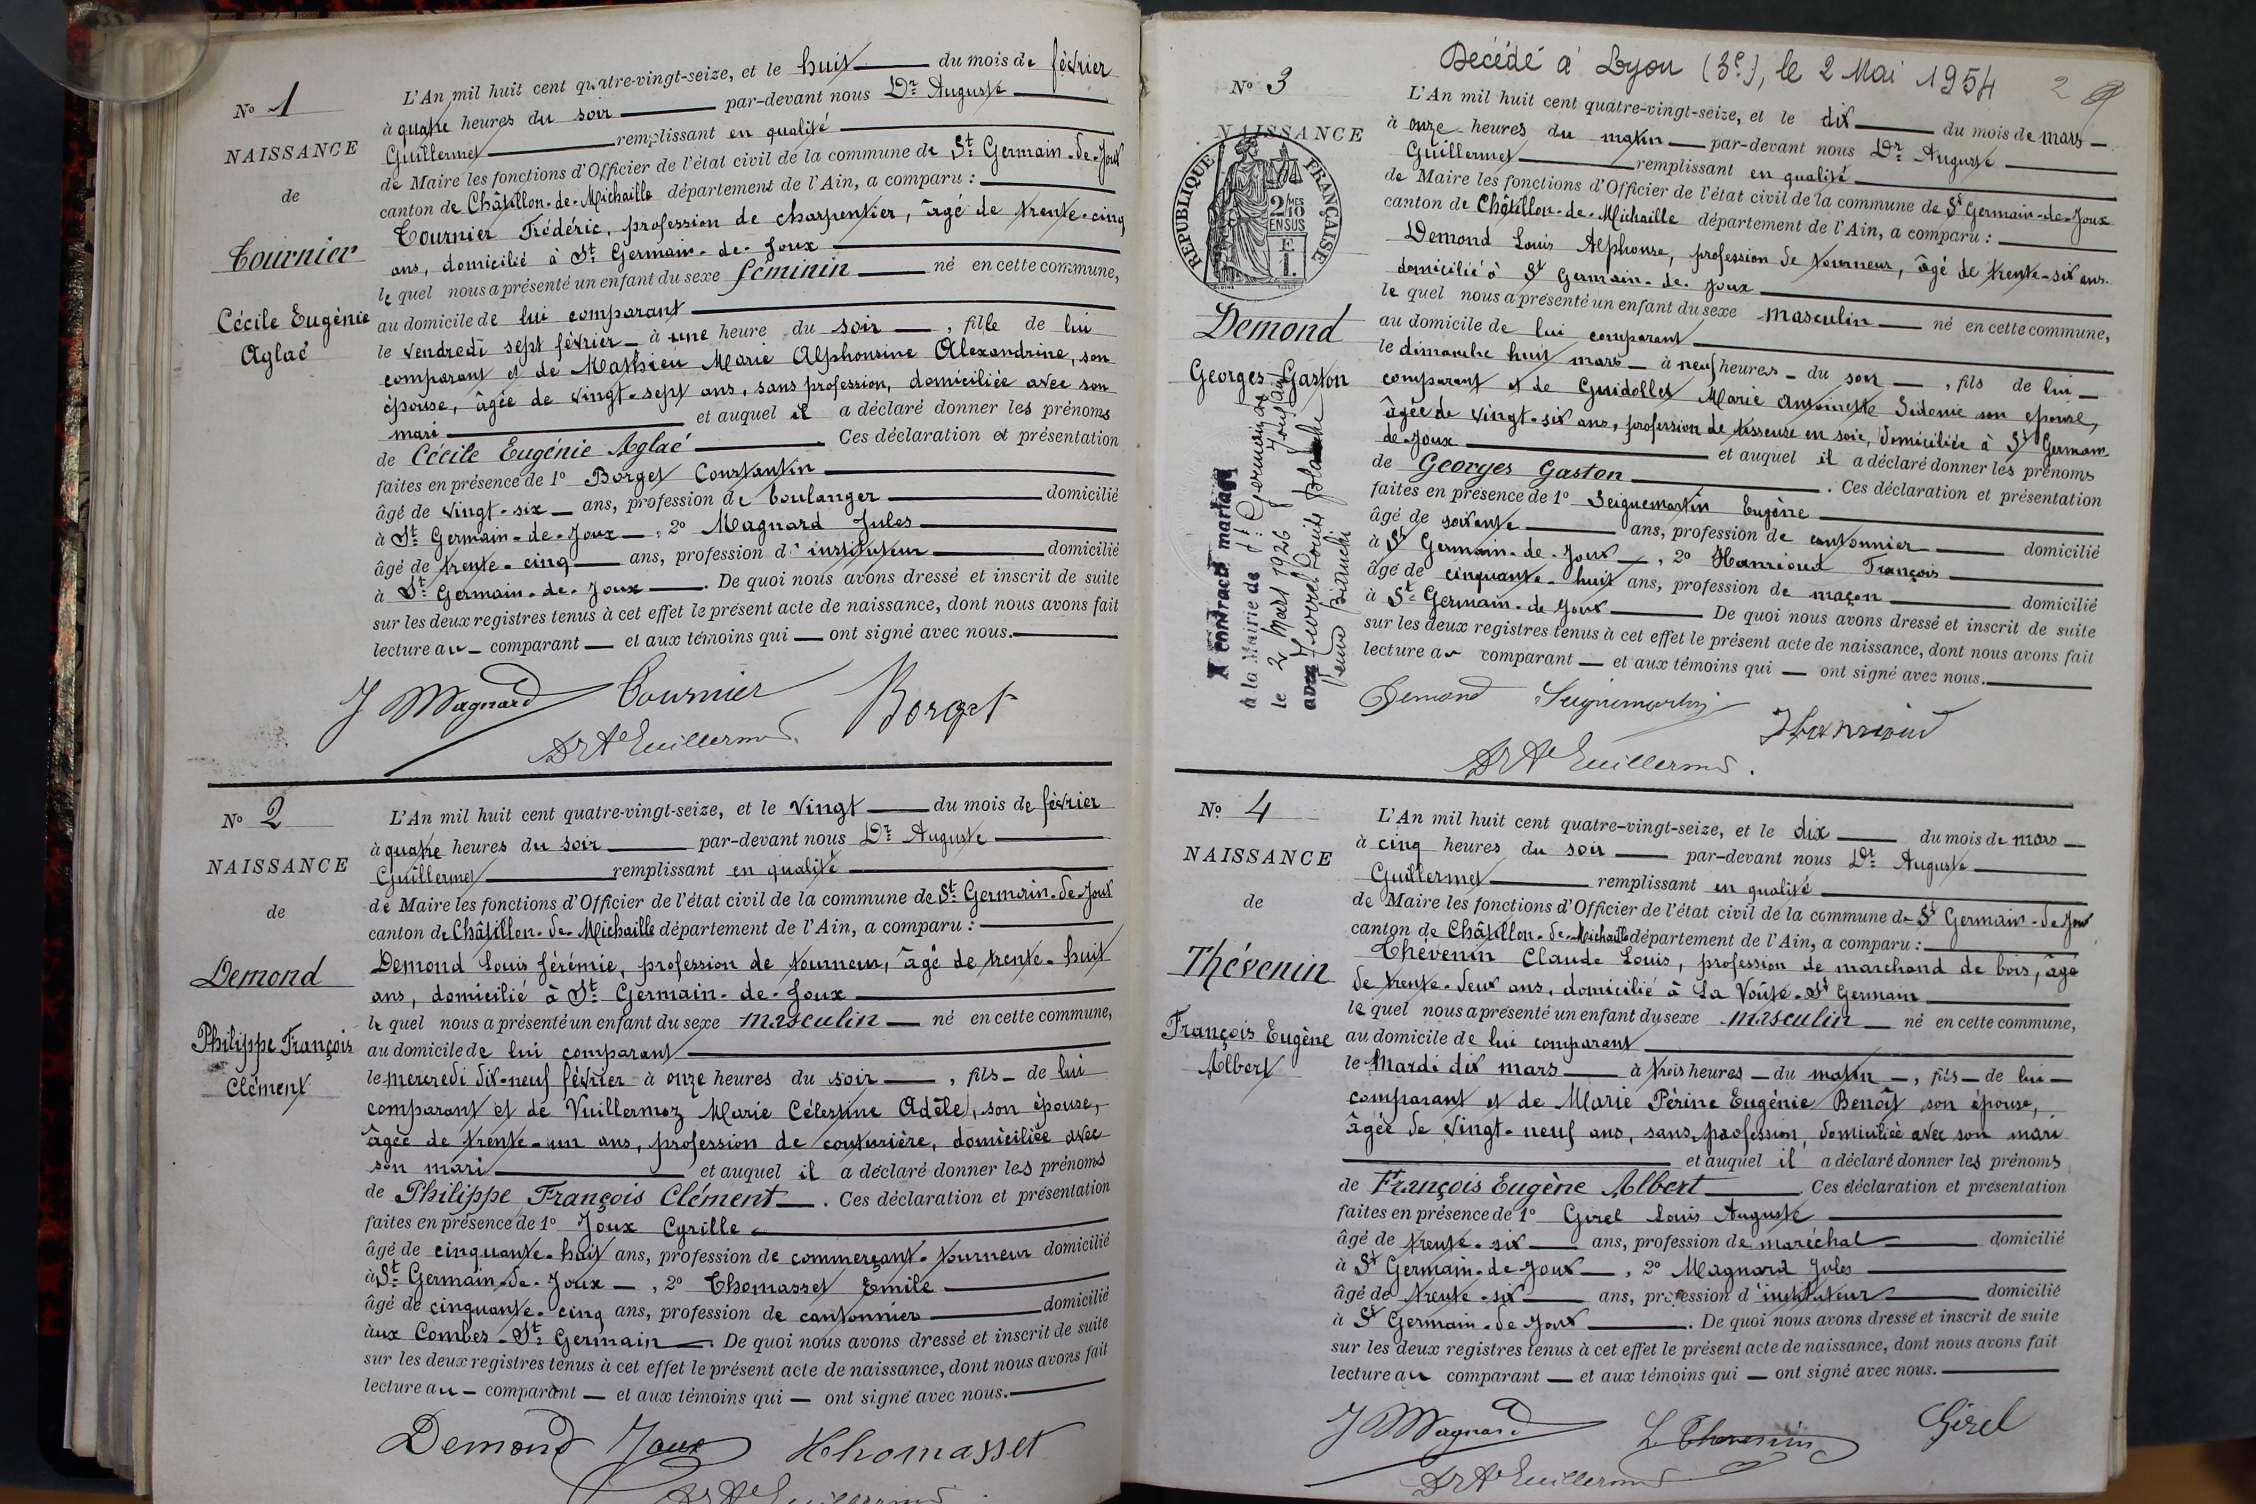 N° 1
NAISSANCE
de
Tournier
Cécile Eugénie
Aglaé
L'An mil huit cent quatre-vingt-seize, et le huit du mois de février
à quatre heures du soir par-devant nous Dr Auguste
Guillermet remplissant en qualité
de Maire les fonctions d'Officier de l'état civil de la commune de St Germain-de-Joux
canton de Châtillon-de-Michaille département de l'Ain, a comparu :
Tournier Frédéric, profession de charpentier, âgé de trente-cinq
ans, domicilié à St Germain-de-Joux
le quel nous a présenté un enfant du sexe féminin né en cette commune,
au domicile de lui comparant
le vendredi sept février à une heure du soir, fille de lui
comparant et de Mathieu Marie Alphonsine Alexandrine, son
épouse, âgée de vingt-sept ans, sans profession, domiciliée avec son
mari et auquel il a déclaré donner les prénoms
de Cécile Eugénie Aglaé Ces déclaration et présentation
faites en présence de 1° Borget Constantin
âgé de vingt-six ans, profession de boulanger domicilié
à St Germain-de-Joux, 2° Magnard Jules
âgé de trente-cinq ans, profession d'instituteur domicilié
à St Germain-de-Joux. De quoi nous avons dressé et inscrit de suite
sur les deux registres tenus à cet effet le présent acte de naissance, dont nous avons fait
lecture au comparant et aux témoins qui ont signé avec nous.
J Magnard Tournier Borget
Dr Ate Guillermet
N° 2
NAISSANCE
de
Demond
Philippe François
Clément
L'An mil huit cent quatre-vingt-seize, et le vingt du mois de février
à quatre heures du soir par-devant nous Dr Auguste
Guillermet remplissant en qualité
de Maire les fonctions d'Officier de l'état civil de la commune de St Germain-de-Joux
canton de Châtillon-de-Michaille département de l'Ain, a comparu :
Demond Louis Jérémie, profession de tourneur, âgé de trente-huit
ans, domicilié à St Germain-de-Joux
le quel nous a présenté un enfant du sexe masculin né en cette commune,
au domicile de lui comparant
le mercredi dix-neuf février à onze heures du soir, fils de lui
comparant et de Vuillermoz Marie Célestine Adèle, son épouse,
âgée de trente-un ans, profession de couturière, domiciliée avec
son mari et auquel il a déclaré donner les prénoms
de Philippe François Clément. Ces déclaration et présentation
faites en présence de 1° Joux Cyrille
âgé de cinquante-huit ans, profession de commerçant-tourneur domicilié
à St Germain-de-Joux, 2° Thomasset Emile
âgé de cinquante-cinq ans, profession de cantonnier domicilié
aux Combes-St Germain. De quoi nous avons dressé et inscrit de suite
sur les deux registres tenus à cet effet le présent acte de naissance, dont nous avons fait
lecture au comparant et aux témoins qui ont signé avec nous.
Demond Joux Thomasset
Dr Ate Guillermet
Décédé à Lyon (3e), le 2 Mai 1954
2
N° 3
NAISSANCE
REPUBLIQUE FRANÇAISE
2/10 MES
EN SUS
Demond
Georges Gaston
A contracté mariage
à la Mairie de St Germain de Joux
le 2 Mars 1926
avec
L'An mil huit cent quatre-vingt-seize, et le dix du mois de mars
à onze heures du matin par-devant nous Dr Auguste
Guillermet remplissant en qualité
de Maire les fonctions d'Officier de l'état civil de la commune de St Germain-de-Joux
canton de Châtillon-de-Michaille département de l'Ain, a comparu :
Demond Louis Alphonse, profession de tourneur, âgé de trente-six ans
domicilié à St Germain-de-Joux
le quel nous a présenté un enfant du sexe masculin né en cette commune,
au domicile de lui comparant
le dimanche huit mars à neuf heures du soir, fils de lui
comparant et de Guidollet Marie Antoinette Sidonie son epouse,
âgée de vingt-six ans, profession de tisseuse en soie, domiciliée à St Germain
de-Joux et auquel il a déclaré donner les prénoms
de Georges Gaston. Ces déclaration et présentation
faites en présence de 1° Seiguemartin Eugène
âgé de soixante ans, profession de cantonnier domicilié
à St Germain-de-Joux, 2° Hanrioud François
âgé de cinquante-huit ans, profession de maçon domicilié
à St Germain-de-Joux De quoi nous avons dressé et inscrit de suite
sur les deux registres tenus à cet effet le présent acte de naissance, dont nous avons fait
lecture au comparant et aux témoins qui ont signé avec nous.
Demond Seiguemartin Hanrioud
Dr Ate Guillermet.
N° 4
NAISSANCE
de
Thévenin
François Eugène
Albert
L'An mil huit cent quatre-vingt-seize, et le dix du mois de mars
à cinq heures du soir par-devant nous Dr Auguste
Guillermet remplissant en qualité
de Maire les fonctions d'Officier de l'état civil de la commune de St Germain-de-Joux
canton de Châtillon-de-Michaille département de l'Ain, a comparu :
Thévenin Claude Louis, profession de marchand de bois, âgé
de trente-deux ans, domicilié à La Voûte-St Germain
le quel nous a présenté un enfant du sexe masculin né en cette commune,
au domicile de lui comparant
le Mardi dix mars à trois heures du matin, fils de lui
comparant et de Marie Périne Eugénie Benoît son épouse,
âgée de vingt-neuf ans, sans profession, domiciliée avec son mari
et auquel il a déclaré donner les prénoms
de François Eugène Albert Ces déclaration et présentation
faites en présence de 1° Girel Louis Auguste
âgé de trente-six ans, profession de maréchal domicilié
à St Germain-de-Joux, 2° Magnard Jules
âgé de trente-six ans, profession d'instituteur domicilié
à St Germain-de-Joux. De quoi nous avons dressé et inscrit de suite
sur les deux registres tenus à cet effet le présent acte de naissance, dont nous avons fait
lecture au comparant et aux témoins qui ont signé avec nous.
J Magnard L. Thevenin Girel
Dr Ate Guillermet